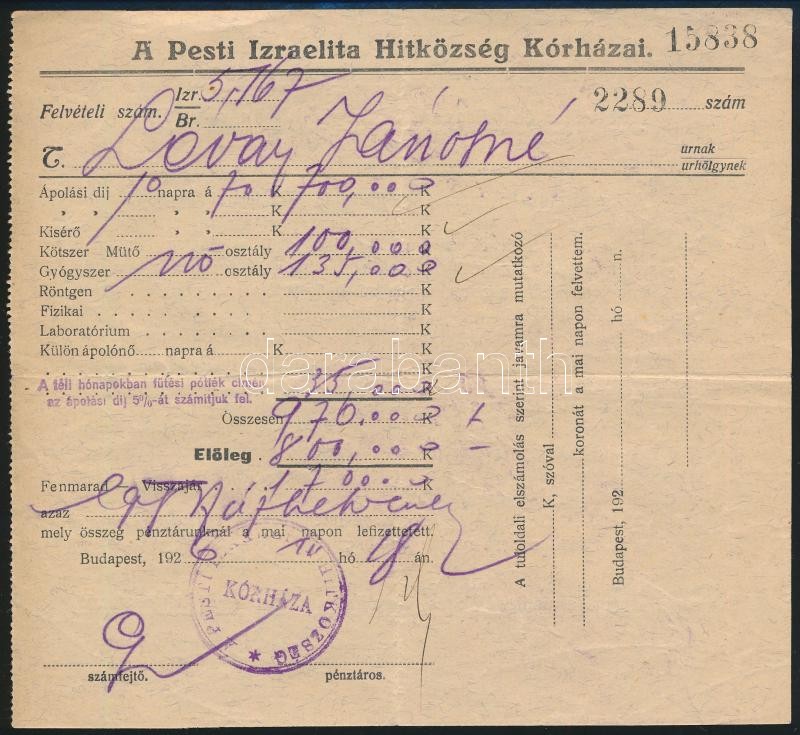 A Pesti Izraelita Hitközség Kórházai. 15838
Felvételi szám. Izr. 5,167
Br. 2289 szám
T. Lovay Zánosné urnak
urhölgynek
Ápolási dij 10 napra á 70 K 700,000 K
" " " " K K
Kisérő " " K K
Kötszer Mütő osztály 100,000 K
Gyógyszer nő osztály 135,000 K
Röntgen K
Fizikai K
Laboratórium K
Külön ápolónő napra á K K
K
A téli hónapokban fütési pótlék cimén 35,000 K
az ápolási dij 5%-át számitjuk fel.
Összesen 970,000 K +
Előleg 800,000 K -
Fenmarad Visszajár 170000 K
azaz
mely összeg pénztárunknál a mai napon lefizettetett.
Budapest, 192 6 IV hó 9 án.
PESTI IZR. HITKÖZSÉG
KÓRHÁZA
számfejtő. pénztáros.
A tuloldali elszámolás szerint javamra mutatkozó
K, szóval
koronát a mai napon felvettem.
Budapest, 192 hó n.
darabanth